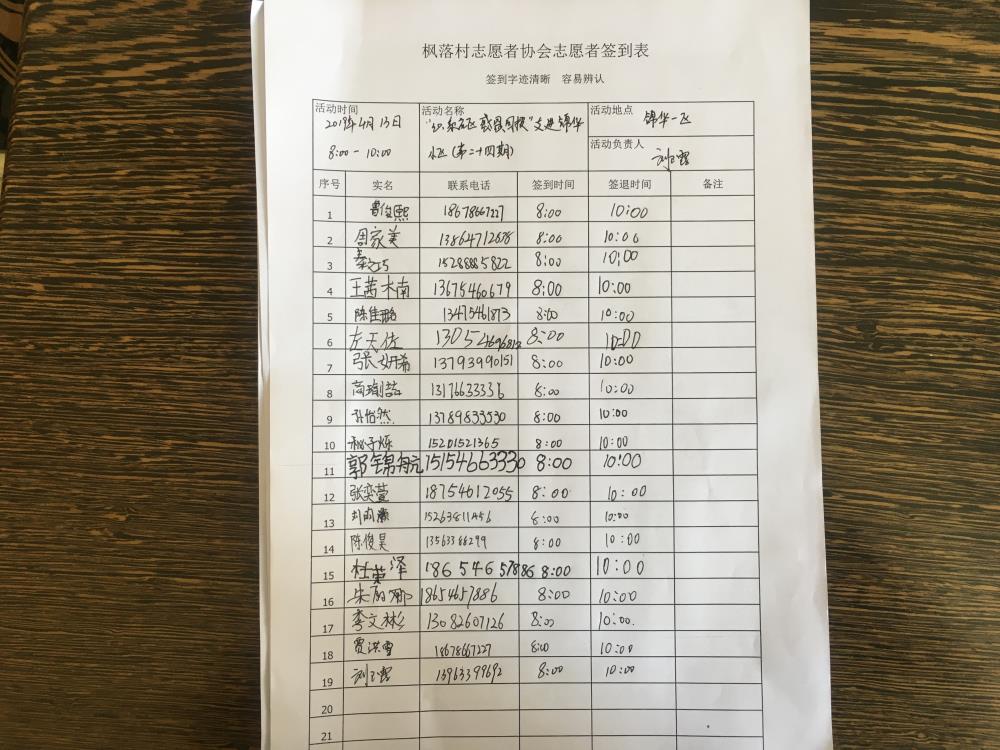 枫落村志愿者协会志愿者签到表
签到字迹清晰 容易辨认
活动时间 活动名称 活动地点
2019年4月13日 锦华一区
8:00-10:00 小区(第二十四期) 活动负责人
序号 实名 联系电话 签到时间 签退时间 备注
1 曹俊熙 18678667227 8:00 10:00
2 周家美 13864712678 8:00 10:00
3 15288885822 8:00 10:00
4 王茜楠 13675460679 8:00 10:00
5 陈佳鹏 13475461873 8:00 10:00
6 左天佐 8:00 10:00
7 张妍希 13793990151 8:00 10:00
8 13176633336 8:00 10:00
9 孙怡然 13789833530 8:00 10:00
10 15201521365 8:00 10:00
11 郭锦航 15154663330 8:00 10:00
12 张奕萱 18754612055 8:00 10:00
13 8:00 10:00
14 陈俊昊 13563388299 8:00 10:00
15 杜荣泽 18654657886 8:00 10:00
16 朱丽娜 18654657886 8:00 10:00
17 李文彬 13082607126 8:00 10:00
18 贾洪雪 18678667227 8:00 10:00
19 13963399692 8:00 10:00
20
21